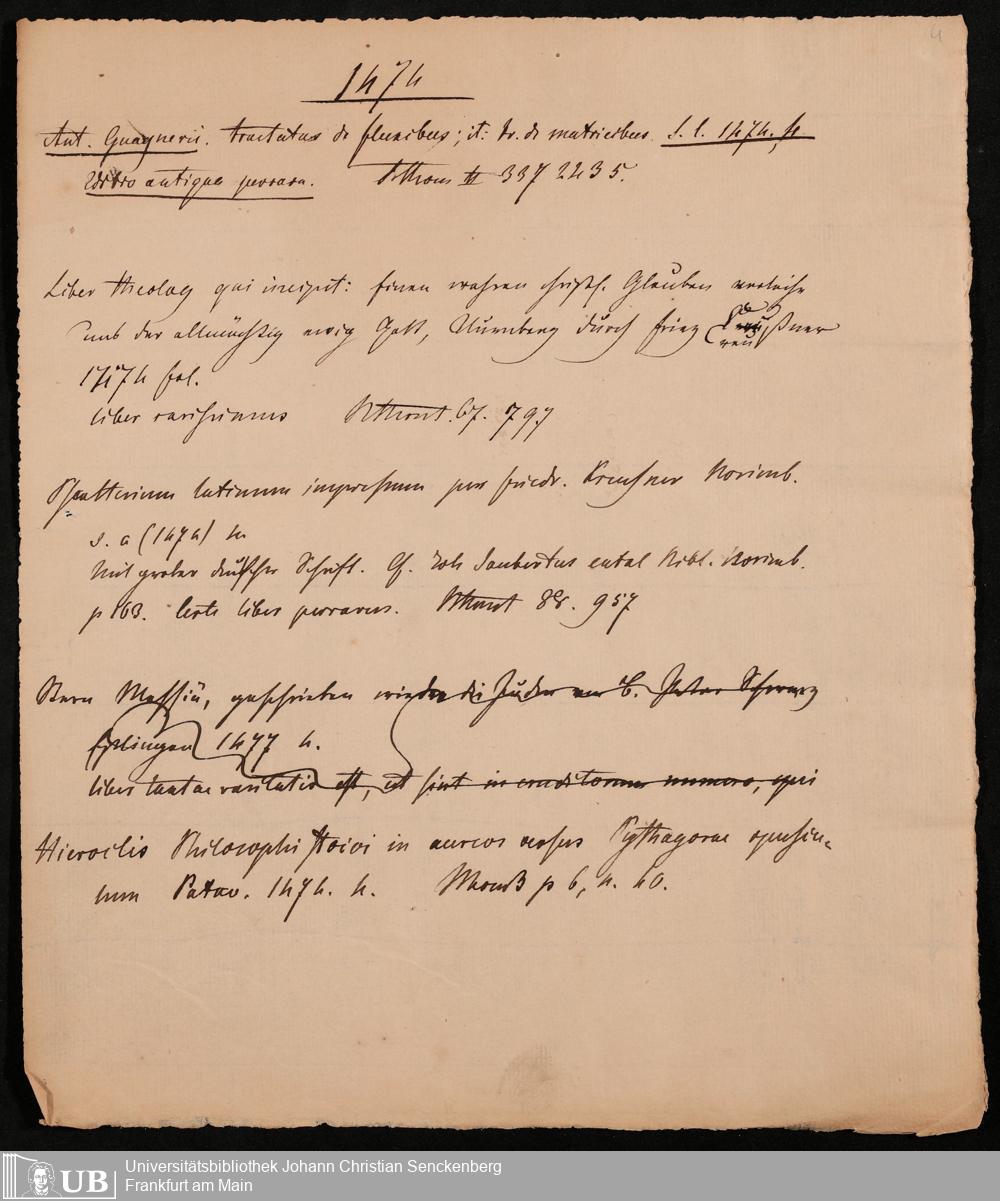 4
1474
Ant. Guaynerii. tractatus de fluxibus; it: tr. de matricibus. S. l. 1474. fo
Editio antiqua perrara. 337 2235.
Liber theolog qui incipit: Einen wahren christl. Glauben verleihe
uns der allmächtig ewig Gott, Nurnberg durch Friez Creußner
1474 fol.
liber rarissimus 67. 797
Psalterium latinum impressum per Friedr. Creusner Norimb.
s. a (1474) 4.
Mit grober deutscher Schrift. Cf. Joh Saubertus catal Bibl. Norimb.
p 163. liber perrarus. 88. 957
Stern Messiä, geschrieben wieder die Juden von B. Peter Schwarz
Eßlingen 1477 4.
liber tantae raritatis est, ut sint in eruditorum numero, qui
Hieroclis Philosophi stoici in aureos versus Pythagorae opuscu-
lum Patav. 1474. 4. p 6, n. 40.
UB
Universitätsbibliothek Johann Christian Senckenberg
Frankfurt am Main